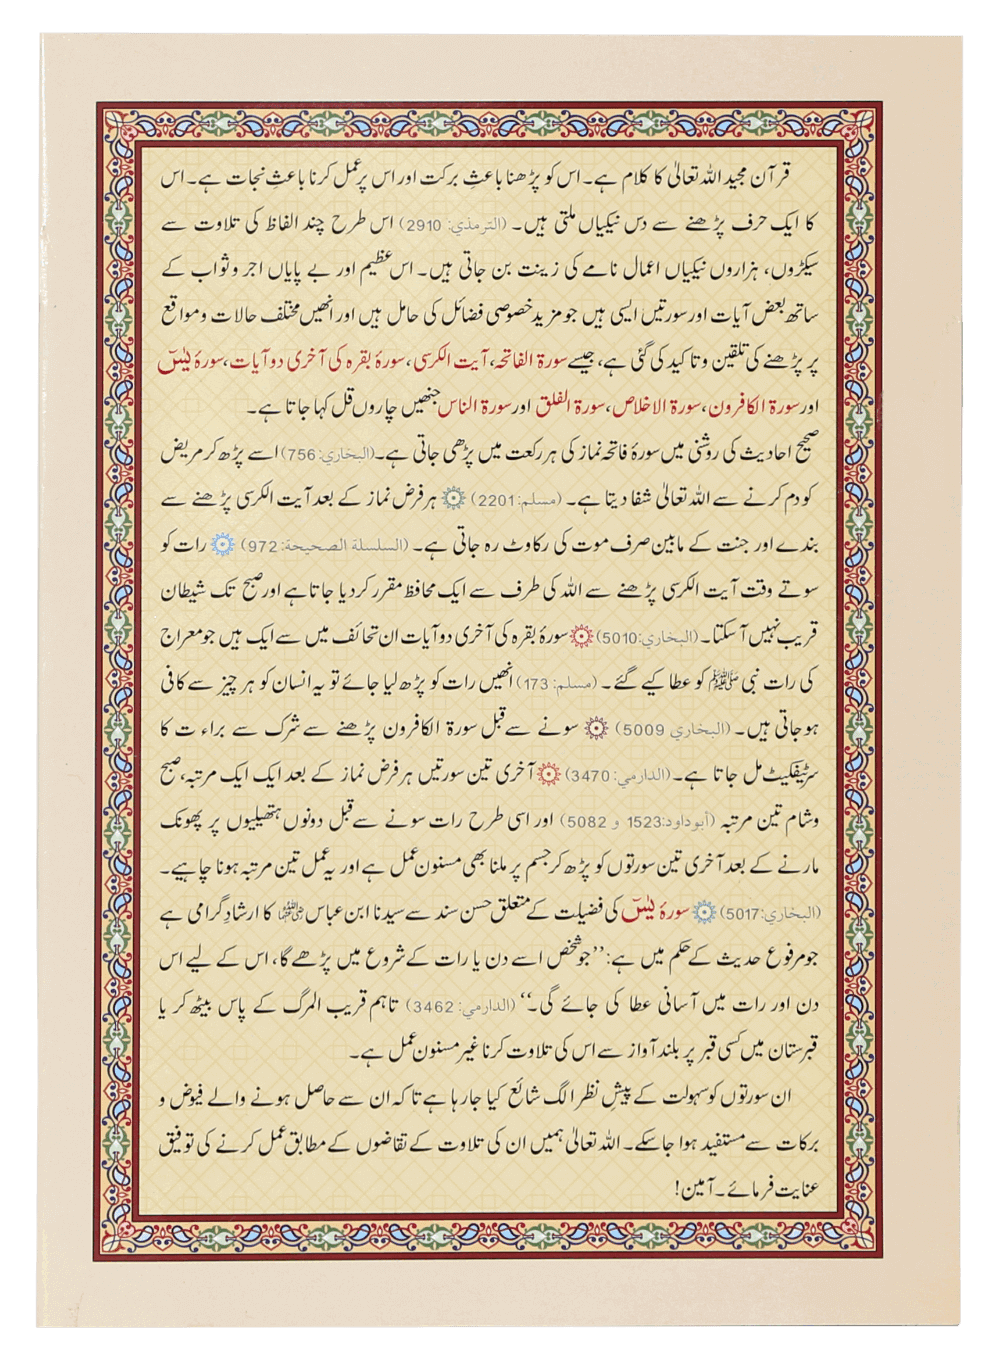 قرآن مجید اللہ تعالیٰ کا کلام ہے۔ اس کو پڑھنا باعثِ برکت اور اس پر عمل کرنا باعثِ نجات ہے۔ اس
کا ایک حرف پڑھنے سے دس نیکیاں ملتی ہیں۔ (الترمذي: 2910) اس طرح چند الفاظ کی تلاوت سے
سیکڑوں، ہزاروں نیکیاں اعمال نامے کی زینت بن جاتی ہیں۔ اس عظیم اور بے پایاں اجر و ثواب کے
ساتھ بعض آیات اور سورتیں ایسی ہیں جو مزید خصوصی فضائل کی حامل ہیں اور انھیں مختلف حالات و مواقع
پر پڑھنے کی تلقین و تاکید کی گئی ہے، جیسے سورۃ الفاتحہ، آیت الکرسی، سورۂ بقرہ کی آخری دو آیات، سورۂ یٰسٓ
اور سورۃ الکافرون، سورۃ الاخلاص، سورۃ الفلق اور سورۃ الناس جنھیں چاروں قل کہا جاتا ہے۔
صحیح احادیث کی روشنی میں سورۂ فاتحہ نماز کی ہر رکعت میں پڑھی جاتی ہے۔ (البخاري: 756) اسے پڑھ کر مریض
کو دم کرنے سے اللہ تعالیٰ شفا دیتا ہے۔ (مسلم: 2201) ۞ ہر فرض نماز کے بعد آیت الکرسی پڑھنے سے
بندے اور جنت کے مابین صرف موت کی رکاوٹ رہ جاتی ہے۔ (السلسلة الصحيحة: 972) ۞ رات کو
سوتے وقت آیت الکرسی پڑھنے سے اللہ کی طرف سے ایک محافظ مقرر کر دیا جاتا ہے اور صبح تک شیطان
قریب نہیں آ سکتا۔ (البخاري: 5010) ۞ سورۂ بقرہ کی آخری دو آیات ان تحائف میں سے ایک ہیں جو معراج
کی رات نبی ﷺ کو عطا کیے گئے۔ (مسلم: 173) انھیں رات کو پڑھ لیا جائے تو یہ انسان کو ہر چیز سے کافی
ہو جاتی ہیں۔ (البخاري 5009) ۞ سونے سے قبل سورۃ الکافرون پڑھنے سے شرک سے براءت کا
سرٹیفکیٹ مل جاتا ہے۔ (الدارمي: 3470) ۞ آخری تین سورتیں ہر فرض نماز کے بعد ایک ایک مرتبہ، صبح
و شام تین مرتبہ (أبوداود: 1523 و 5082) اور اسی طرح رات سونے سے قبل دونوں ہتھیلیوں پر پھونک
مارنے کے بعد آخری تین سورتوں کو پڑھ کر جسم پر ملنا بھی مسنون عمل ہے اور یہ عمل تین مرتبہ ہونا چاہیے۔
(البخاري: 5017) ۞ سورۂ یٰسٓ کی فضیلت کے متعلق حسن سند سے سیدنا ابن عباس رضی اللہ عنہما کا ارشادِ گرامی ہے
جو مرفوع حدیث کے حکم میں ہے: ’’جو شخص اسے دن یا رات کے شروع میں پڑھے گا، اس کے لیے اس
دن اور رات میں آسانی عطا کی جائے گی۔‘‘ (الدارمي: 3462) تاہم قریب المرگ کے پاس بیٹھ کر یا
قبرستان میں کسی قبر پر بلند آواز سے اس کی تلاوت کرنا غیر مسنون عمل ہے۔
ان سورتوں کو سہولت کے پیش نظر الگ شائع کیا جا رہا ہے تاکہ ان سے حاصل ہونے والے فیوض و
برکات سے مستفید ہوا جا سکے۔ اللہ تعالیٰ ہمیں ان کی تلاوت کے تقاضوں کے مطابق عمل کرنے کی توفیق
عنایت فرمائے۔ آمین!